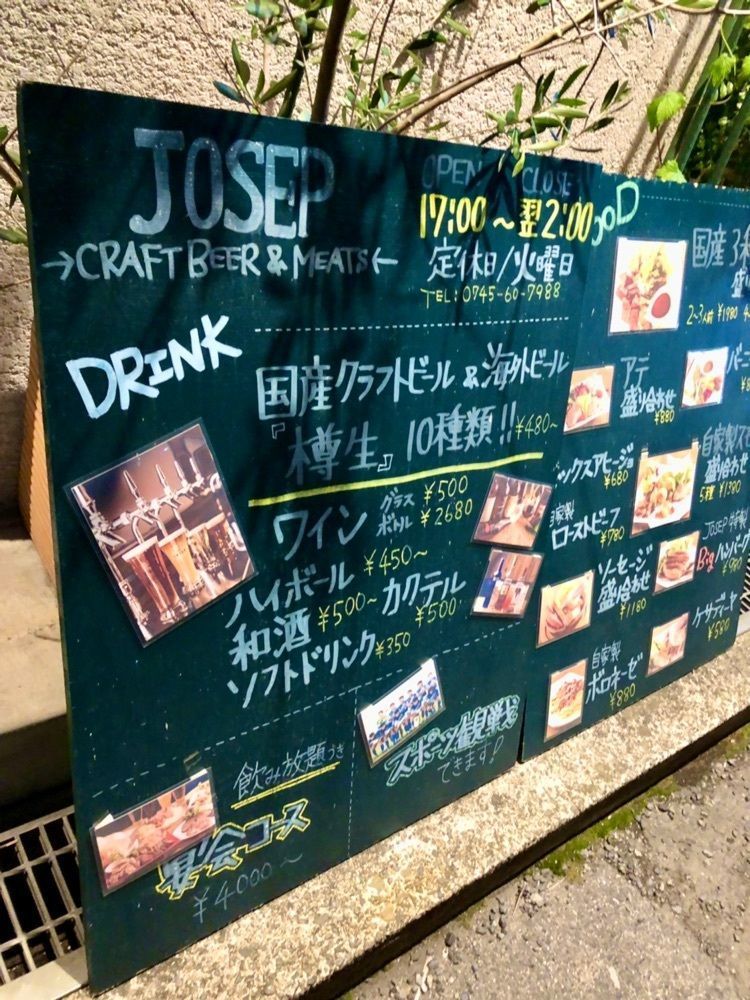 JOSEP
→CRAFT BEER & MEATS←
OPEN CLOSE
17:00～翌2:00
定休日/火曜日
TEL:0745-60-7988
DRINK
国産クラフトビール&海外ビール
『樽生』10種類!! ¥480~
ワイン グラス ¥500
ボトル ¥2680
ハイボール ¥450～
和酒 ¥500~ カクテル ¥500
ソフトドリンク ¥350
飲み放題つき
宴会コース
¥4000～
スポーツ観戦
できます!
OD
国産3
盛
2~3人前 ¥1980
アテ
盛り合わせ
¥880
バー
ックスアヒージョ
¥680
自家製ス
盛り合わせ
5種 ¥1380
家製
ローストビーフ
¥780
JOSEP 特製
Bigハンバーグ
¥980
ソーセージ
盛り合わせ
¥1180
ケサディーヤ
¥580
自家製
ボロネーゼ
¥880